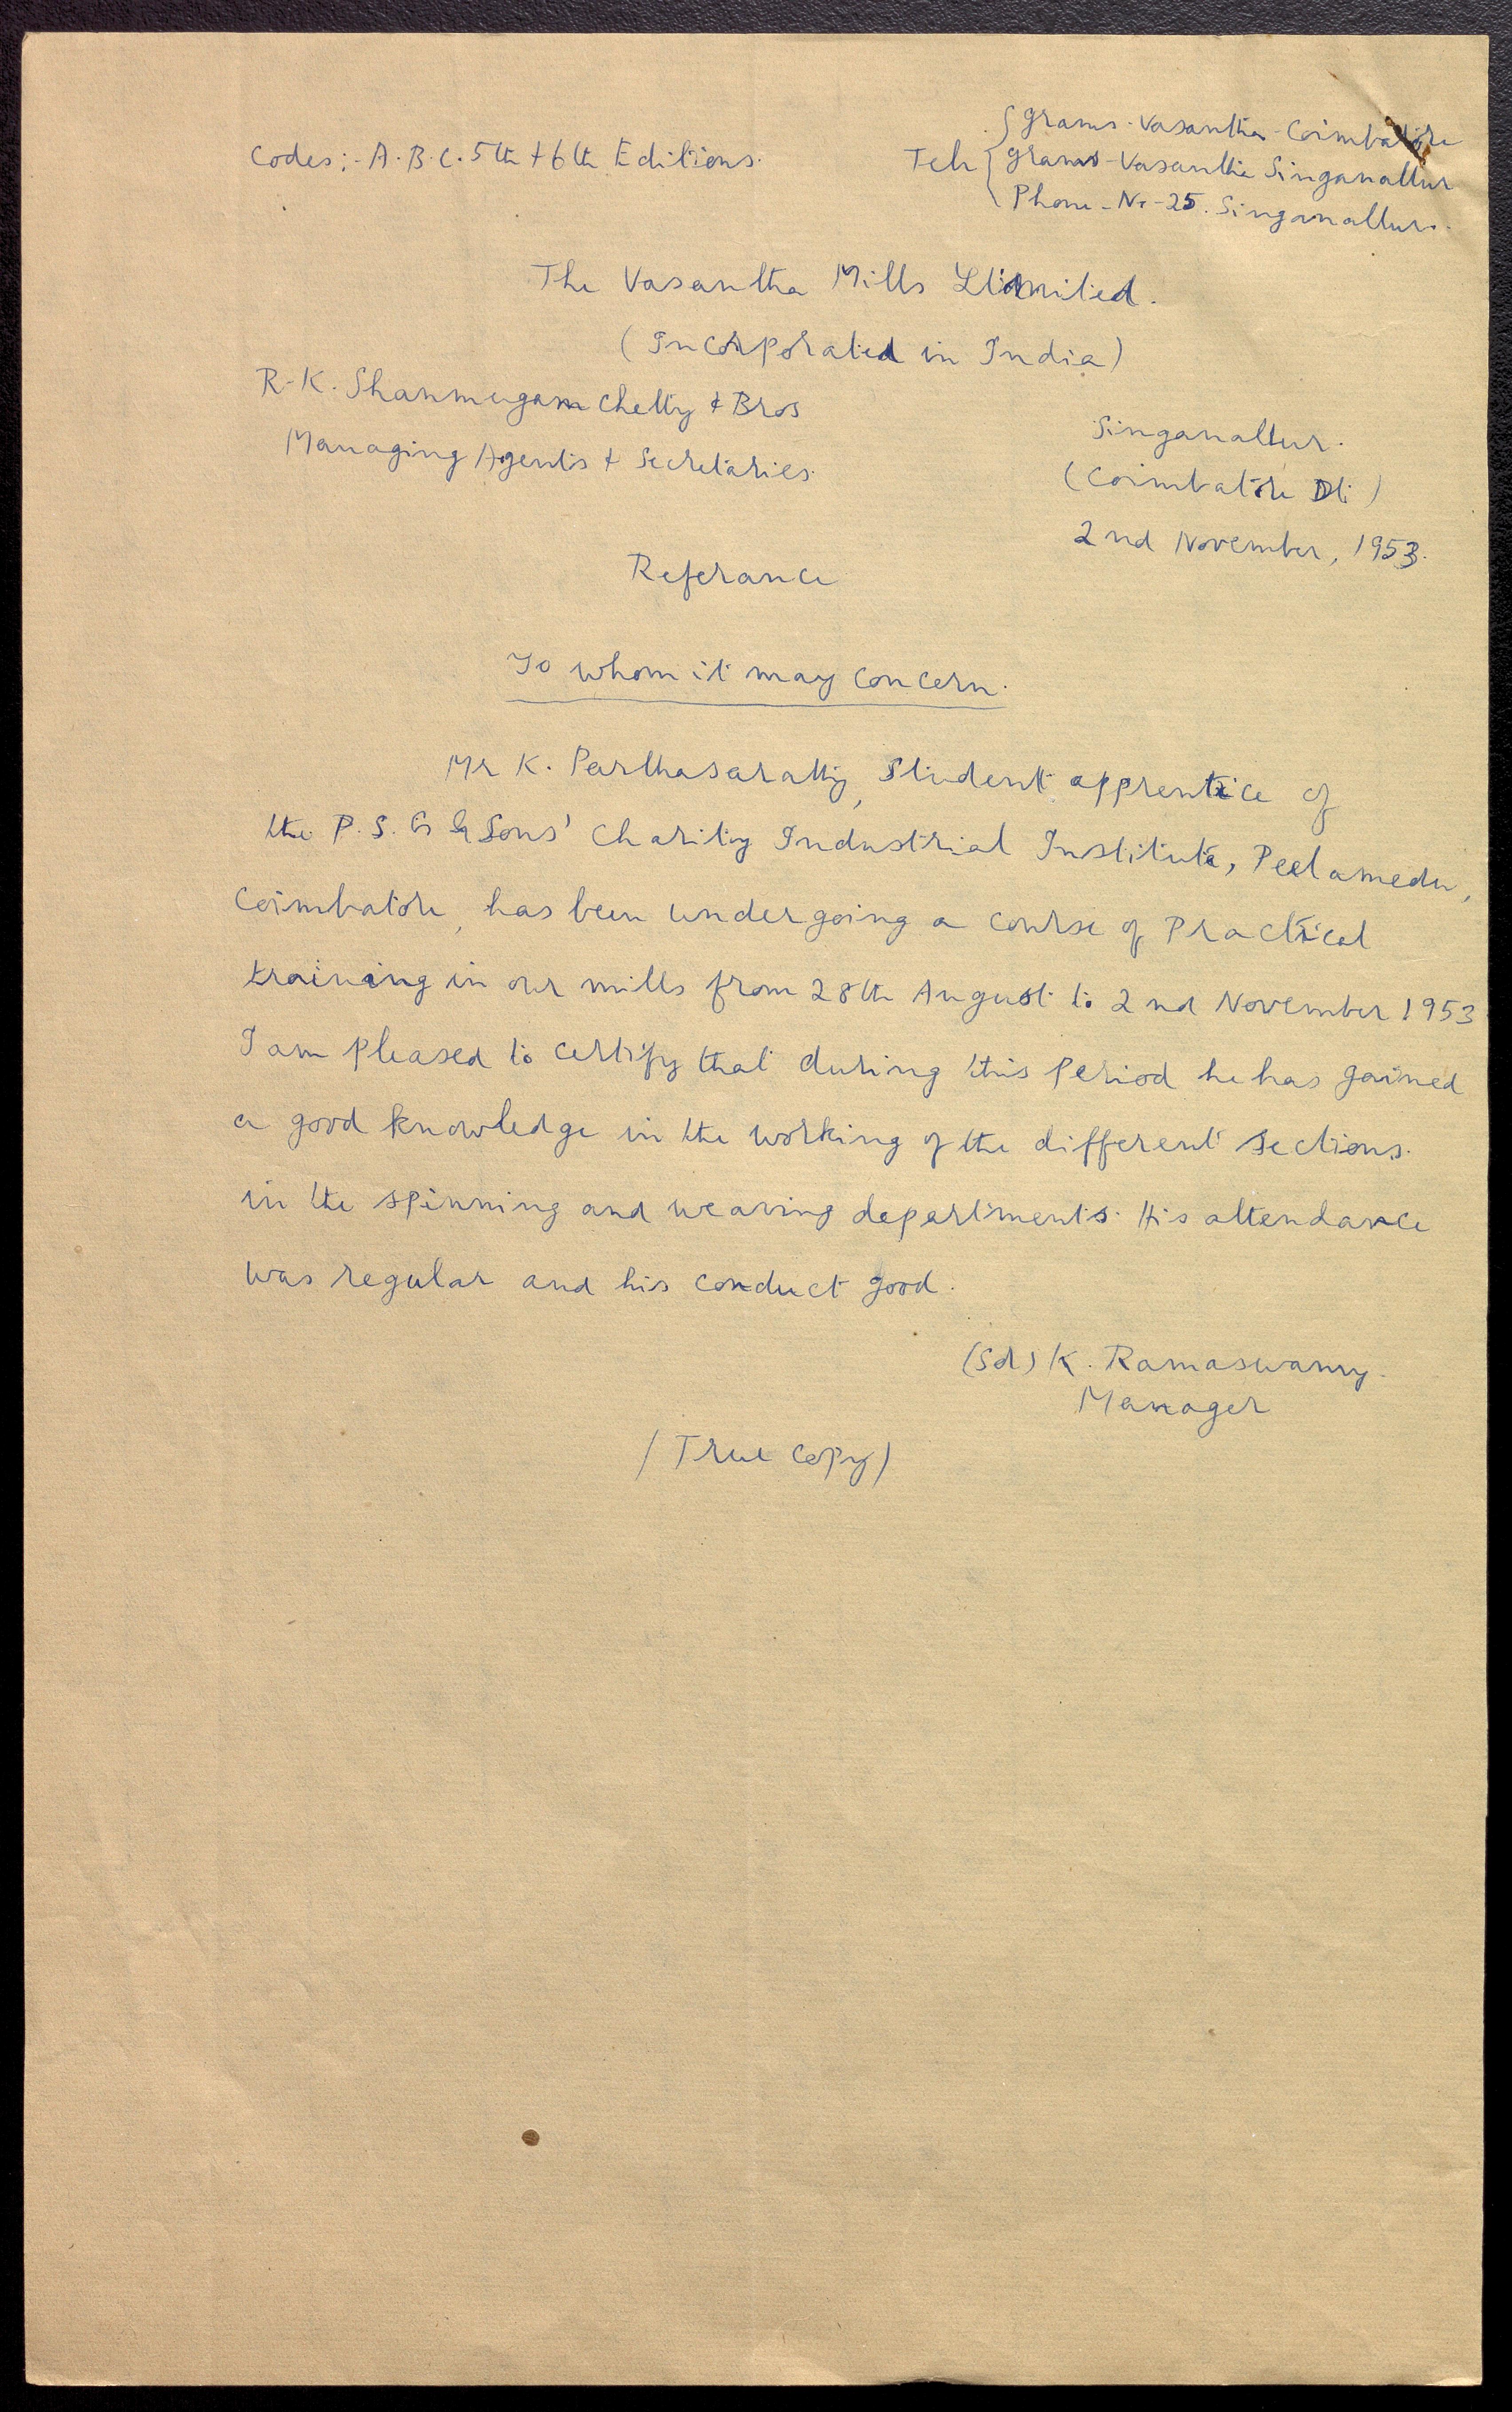 Codes:- A.B.C. 5th & 6th Editions.
Tele { Grams - Vasantha - Coimbatore
Grams - Vasantha Singanallur
Phone - No - 25. Singanallur.
The Vasantha Mills Limited.
(Incorporated in India)
R.K. Shanmugam Chetty & Bros
Managing Agents & Secretaries.
Singanallur.
(Coimbatore Dt.)
2nd November, 1953.
Referance
To whom it may concern.
Mr K. Parthasarathy, Student apprentice of
the P.S.G & Sons' Charity Industrial Institute, Peelamedu,
Coimbatore, has been undergoing a course of Practical
training in our mills from 28th August to 2nd November 1953
I am pleased to certify that during this period he has gained
a good knowledge in the working of the different sections
in the spinning and weaving departments. His attendance
was regular and his conduct good.
(Sd) K. Ramaswamy.
Manager
(True Copy)